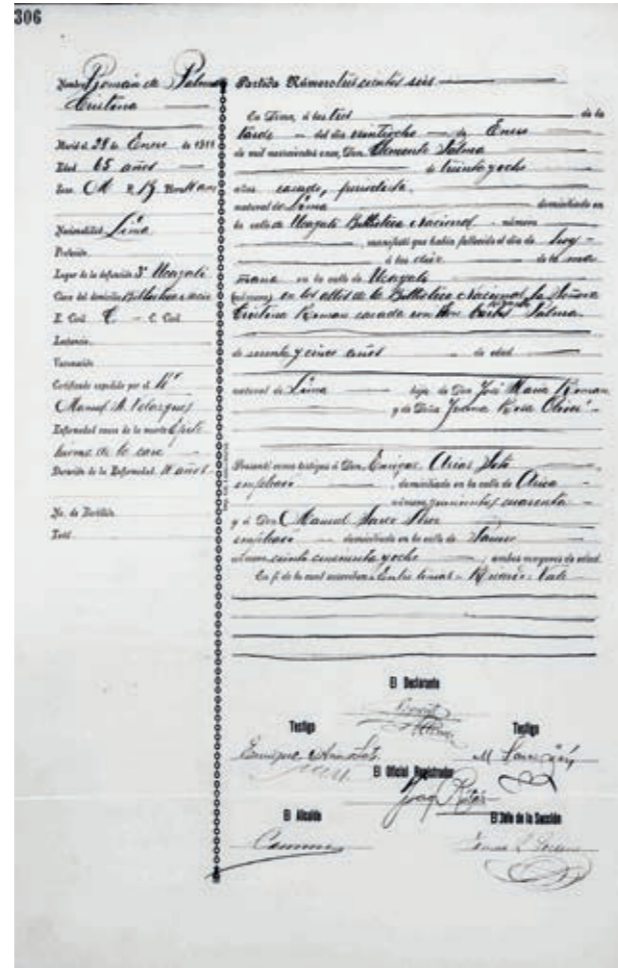 306
Nombre Román de Palma
Cristina
Murió el 28 de Enero de 1911
Edad 65 años
Sexo M R B
Nacionalidad Lima
Profesión
Lugar de la defunción 3ª Ucayali
Casa del domicilio Biblioteca
E. Civil C C. Civil
Lactancia
Vacunación
Certificado expedido por el Dr
Manuel A. Velasquez
Enfermedad causa de la muerte Epite
lioma de la cara
Duración de la Enfermedad 11 años
No. de Boletín
Total
Partida Número trescientos seis
En Lima, á las tres de la
tarde del día veintiocho de Enero
de mil novecientos once, Don Clemente Palma
de treinta y ocho
años casado, periodista
natural de Lima domiciliado en
la calle de Ucayali Biblioteca Nacional número
manifestó que había fallecido el día de hoy
á las de la ma
ñana en la calle de Ucayali
(número) en los altos de la Biblioteca Nacional la Señora
Cristina Roman casada con Don Ricardo Palma
de sesenta y cinco años de edad
natural de Lima hija de Don José Maria Roman
y de Doña Juana Rosa Oliver
Presentó como testigos á Don Enrique Arias Soto
empleado domiciliado en la calle de Arica
número quinientos cuarenta
y á Don Manuel
empleado domiciliado en la calle de
número ciento cincuenta y ocho ambos mayores de edad
En fé de lo cual suscriben Entre lineas Ricardo Vale
El Declarante
Testigo Testigo
Enrique Arias Soto
El Oficial Registrador
El Alcalde El Jefe de la Sección